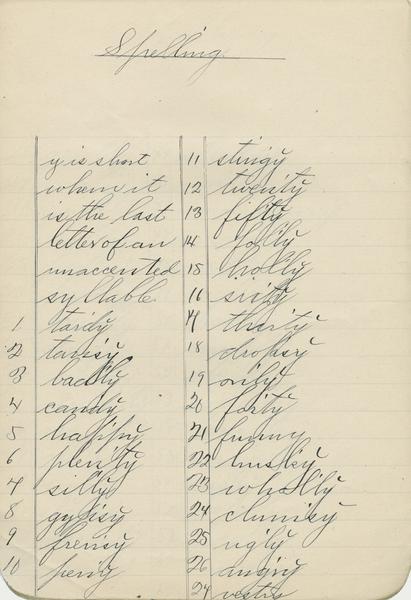 Spelling
y is short
when it
is the last
letter of an
unaccented
syllable.
1 tardy
2 tansy
3 badly
4 candy
5 happy
6 plenty
7 silly
8 gypsy
9 frensy
10
11 stingy
12 twenty
13 fifty
14 folly
15 holly
16 sixty
17 thirty
18 dropsy
19 only
20 forty
21 funny
22 husky
23 wholly
24 clumsy
25 ugly
26 angry
27